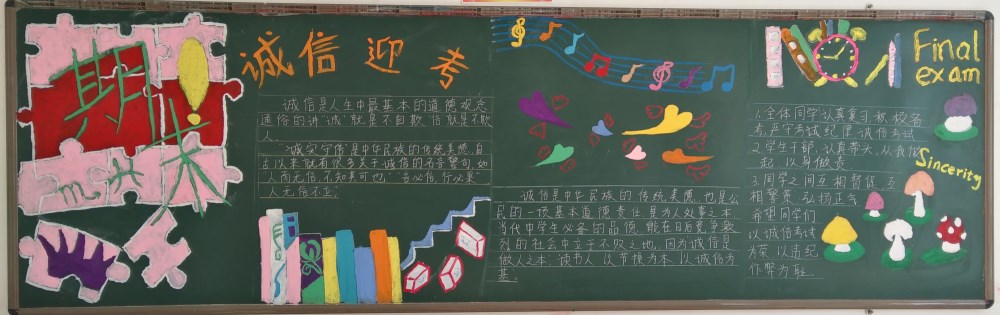 期末!
诚信迎考
诚信是人生中最基本的道德观念
通俗的讲“诚”就是不自欺信就是不欺
人.
“诚实守信”是中华民族的传统美德.自
古以来就有很多关于诚信的名言警句.如
人而无信.不知其可也”“言必信.行必果”
人无信不立”
诚信是中华民族的传统美德.也是公
民的一项基本道德责任.是为人处事之本
当代中学生必备的品德.能在日后竞争激
烈的社会中立于不败之地.因为诚信是
做人之本.读书人.以节操为本.以诚信为
基.
Final
exam
1.全体同学认真复习积极备
考.严守考试纪律.诚信考试
2.学生干部.认真带头.从我做
起.以身做责
3.同学之间互相督促.互
相警策.弘扬正气
希望同学们
以诚信考试
为荣.以违纪
作弊为耻.
Sincerity